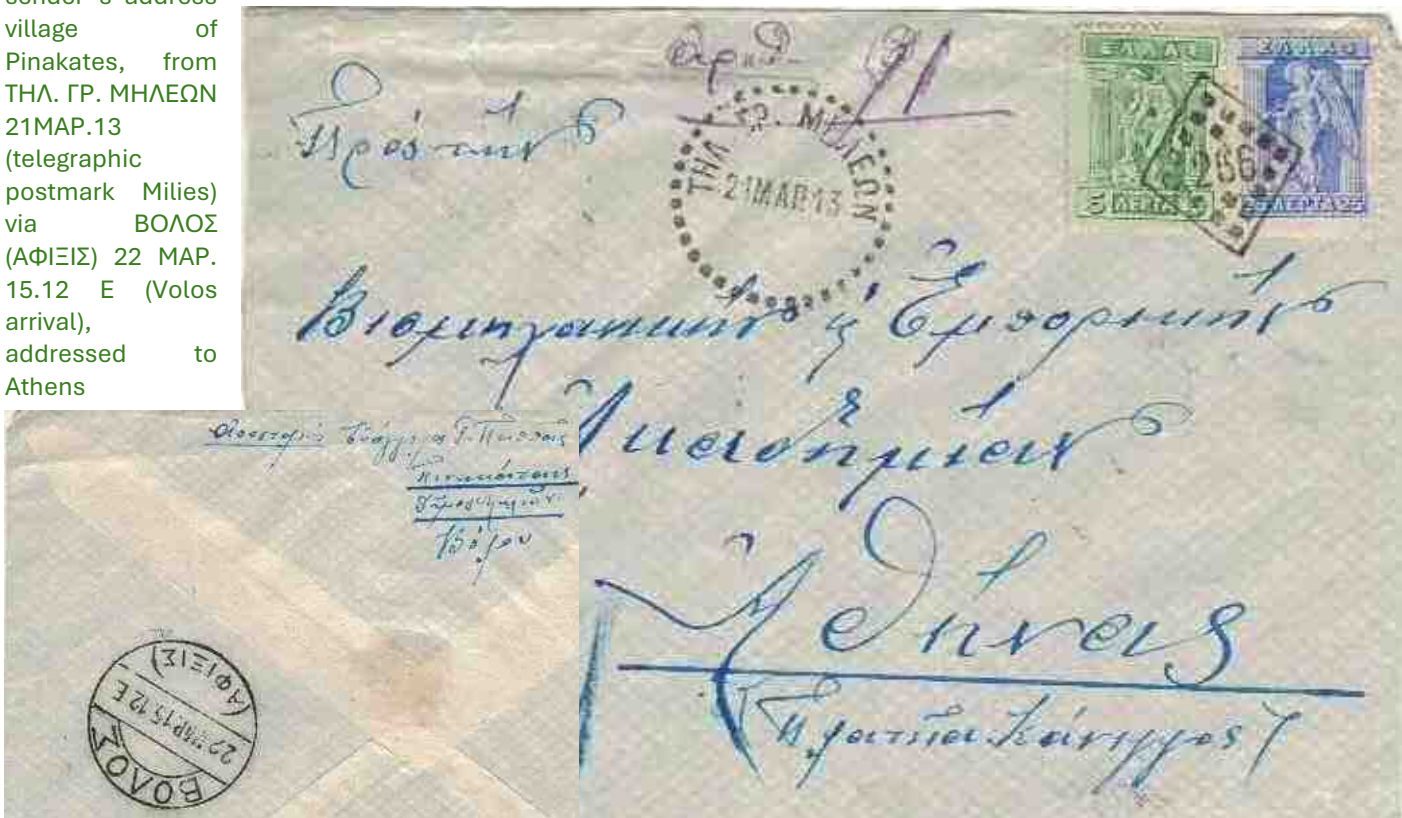 sender's address
village of
Pinakates, from
ΤΗΛ. ΓΡ. ΜΗΛΕΩΝ
21ΜΑΡ.13
(telegraphic
postmark Milies)
via ΒΟΛΟΣ
(ΑΦΙΞΙΣ) 22 ΜΑΡ.
15.12 Ε (Volos
arrival),
addressed to
Athens
Ἀριθ. 91
Πρὸς τὴν
ΤΗΛ. ΓΡ. ΜΗΛΕΩΝ
21ΜΑΡ.13
ΕΛΛΑΣ
5 ΛΕΠΤΑ 5
ΕΛΛΑΣ
25 ΛΕΠΤΑ 25
266
Βιομηχανικὴν & Ἐμπορικὴν
Ἀκαδημίαν
Ἀθήνας
(Πλατεῖα Κάνιγγος)
Πινακάτας
Βόλου
(ΑΦΙΞΙΣ)
22 ΜΑΡ 15 12 Ε
ΒΟΛΟΣ